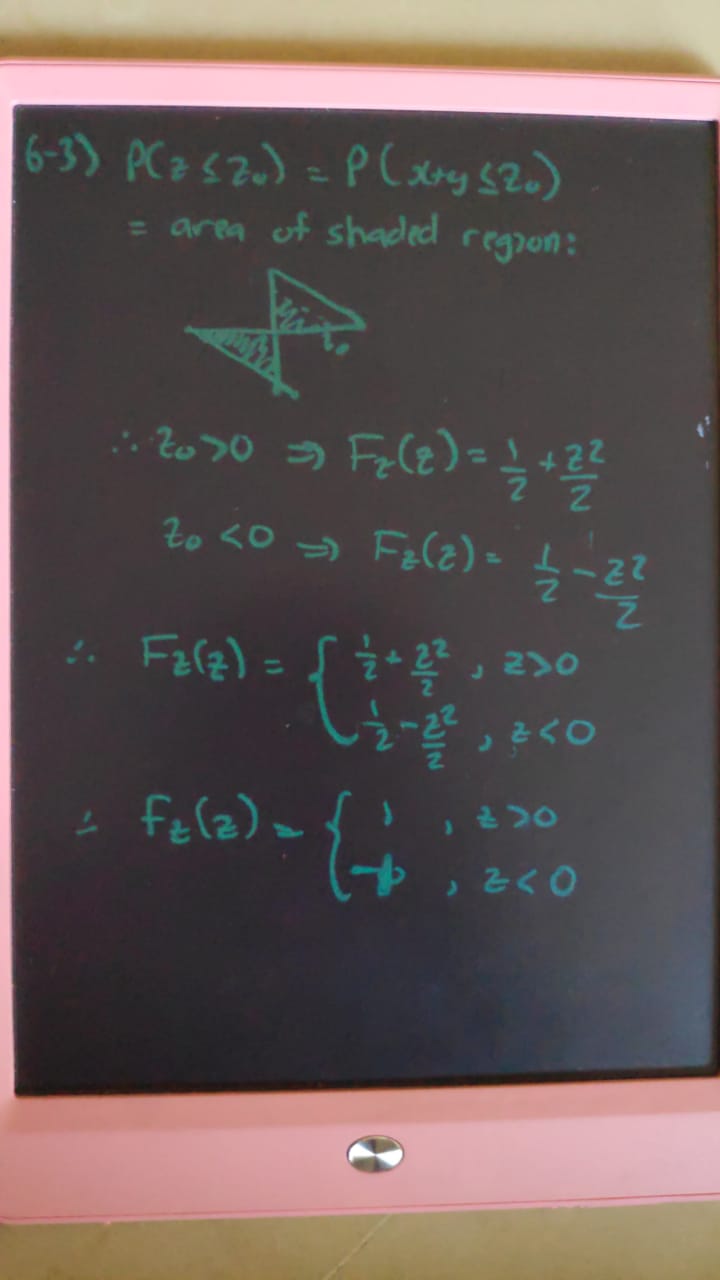 6-3) P(z ≤ z₀) = P(x+y ≤ z₀)
= area of shaded region:
∴ z₀ > 0 ⇒ F_z(z) = 1/2 + z²/2
z₀ < 0 ⇒ F_z(z) = 1/2 - z²/2
∴ F_z(z) = { 1/2 + z²/2 , z > 0
1/2 - z²/2 , z < 0
∴ f_z(z) = { 1 , z > 0
, z < 0